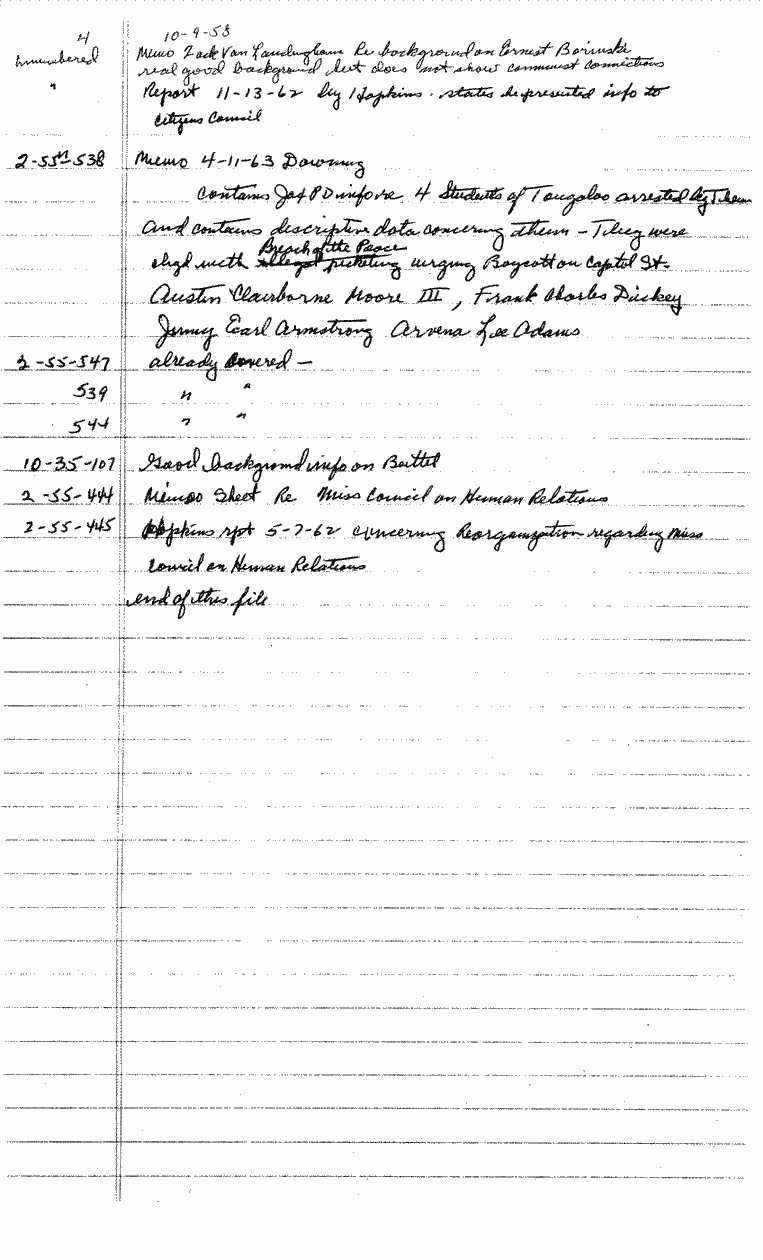 4
10-9-58
unnumbered Memo Zack Van Landingham Re background on Ernest Borinski
real good background but does not show communist connections
" Report 11-13-62 by Hopkins. states he presented info to
Citizens Council
2-55-538 Memo 4-11-63 Downing
contains Jax PD info re 4 Students of Tougaloo arrested by them
and contains descriptive data concerning them – They were
Breach of the Peace
chgd with illegal picketing urging Boycott on Capitol St.
Austin Clairborne Moore III, Frank Charles Dickey
Jimmy Earl Armstrong Arvena Lee Adams
2-55-547 already covered —
539 " "
544 " "
10-35-107 Good background info on Beittel
2-55-444 Memo Sheet Re Miss Council on Human Relations
2-55-445 Hopkins rpt 5-7-62 concerning Reorganization regarding Miss
Council on Human Relations
end of this file